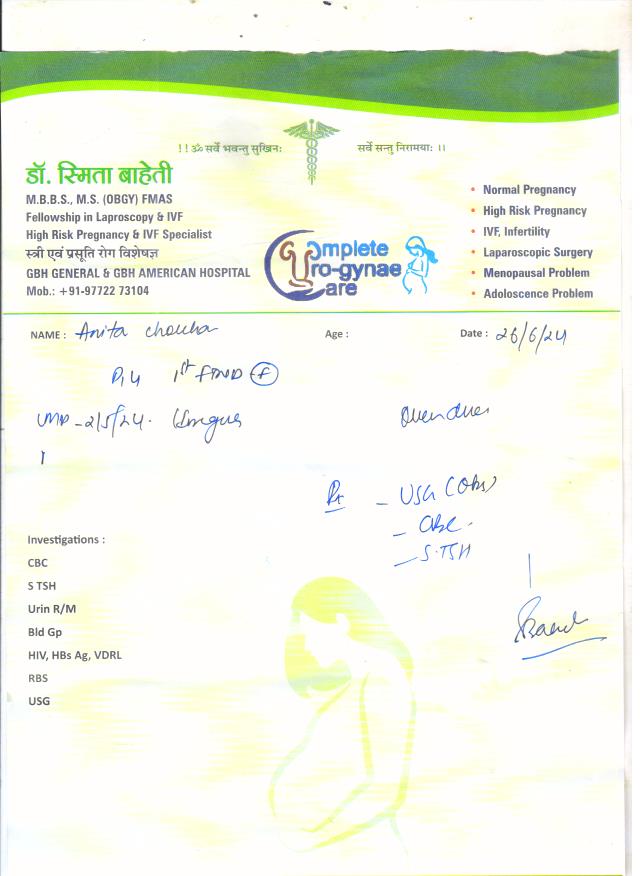 !! ॐ सर्वे भवन्तु सुखिनः सर्वे सन्तु निरामयाः ।।
डॉ. स्मिता बाहेती
M.B.B.S., M.S. (OBGY) FMAS
Fellowship in Laproscopy & IVF
High Risk Pregnancy & IVF Specialist
स्त्री एवं प्रसूति रोग विशेषज्ञ
GBH GENERAL & GBH AMERICAN HOSPITAL
Mob.: +91-97722 73104
Complete
Uro-gynae
Care
• Normal Pregnancy
• High Risk Pregnancy
• IVF, Infertility
• Laparoscopic Surgery
• Menopausal Problem
• Adoloscence Problem
NAME : Anita Age : Date : 26/6/24
1st FTND (F)
LMP - 2/5/24. Overdues
Rx - USG (Obs)
- CBC
- S.TSH
Investigations :
CBC
S TSH
Urin R/M
Bld Gp
HIV, HBs Ag, VDRL
RBS
USG